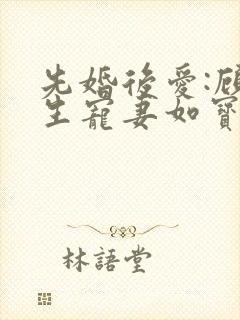 先婚後愛:顧
生寵妻如寶
林語堂